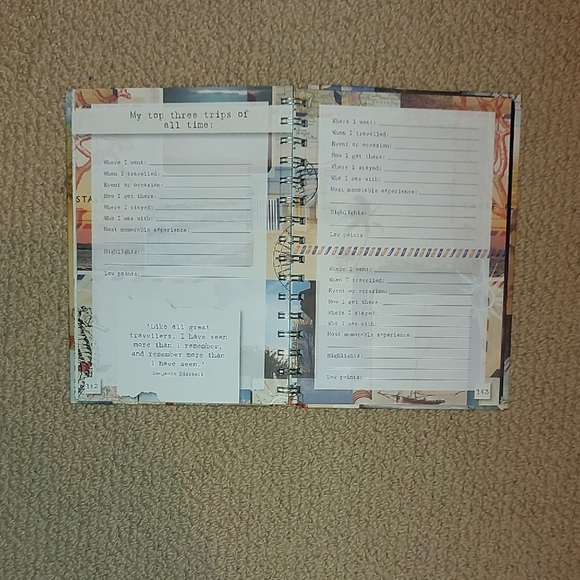 My top three trips of
all time:
Where I went:
When I travelled:
Event or occasion:
How I got there:
Where I stayed:
Who I was with:
Most memorable experience:
Highlights:
Low points:
'Like all great
travellers, I have seen
more than I remember,
and remember more than
I have seen.'
Benjamin Disraeli
142
Where I went:
When I travelled:
Event or occasion:
How I got there:
Where I stayed:
Who I was with:
Most memorable experience:
Highlights:
Low points:
Where I went:
When I travelled:
Event or occasion:
How I got there:
Where I stayed:
Who I was with:
Most memorable experience:
Highlights:
Low points:
143